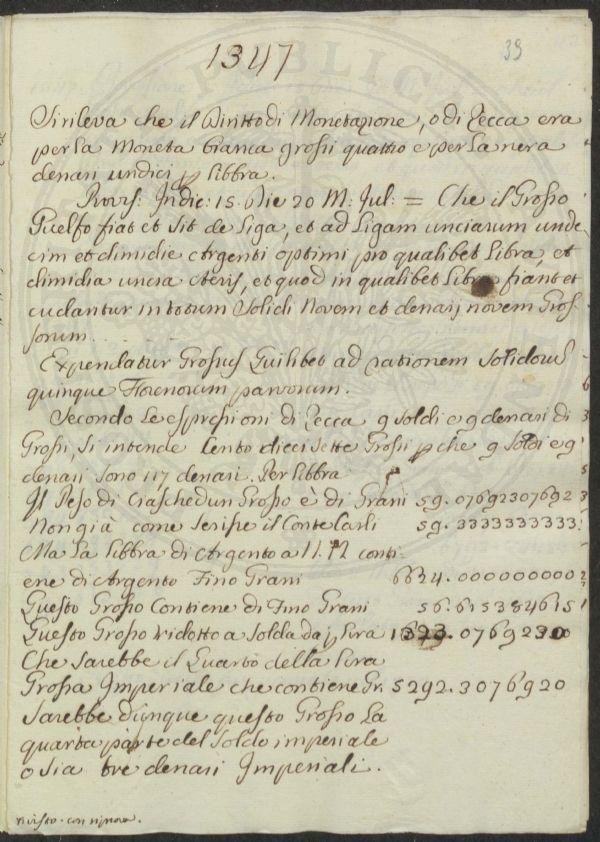 1347
39
Si rileva che il Diritto di Monetazione, o di Zecca era
per la Moneta bianca grossi quattro e per la nera
denari undici p libbra.
Rovis: Indic: 15. Die 20 M: Jul: = Che il Grosso
Guelfo fiat et sit de Liga, et ad Ligam unciarum unde
cim et dimidie Argenti optimi pro qualibet Libra, et
dimidia uncia Aeris, et quod in qualibet Libra fiant et
cudantur in totum Solidi Novem et denarij novem Gros
sorum
Expendatur Grossus Quilibet ad rationem solidorum
quinque Florenorum parvorum.
Secondo le espressioni di Zecca 9 soldi e 9 denari di
Grossi, si intende Cento dieci sette Grossi p che 9 Soldi e 9
denari sono 117 denari. Per Libbra
Il Peso di Ciaschedun Grosso è di Grani 59.07692307692
Non già come scrisse il Conte Carli 59.3333333333
Ma La libbra di Argento a 11.12 conti
ene di Argento Fino Grani 6624.000000000
Questo Grosso Contiene di Fino Grani 56.615384615
Questo Grosso ridotto a Solda da p Lira 1323.0769230
Che sarebbe il Quarto della Lira
Grossa Imperiale che contiene Gr. 5292.3076920
Sarebbe dunque questo Grosso La
quarta parte del Soldo imperiale
o sia tre denari Imperiali.